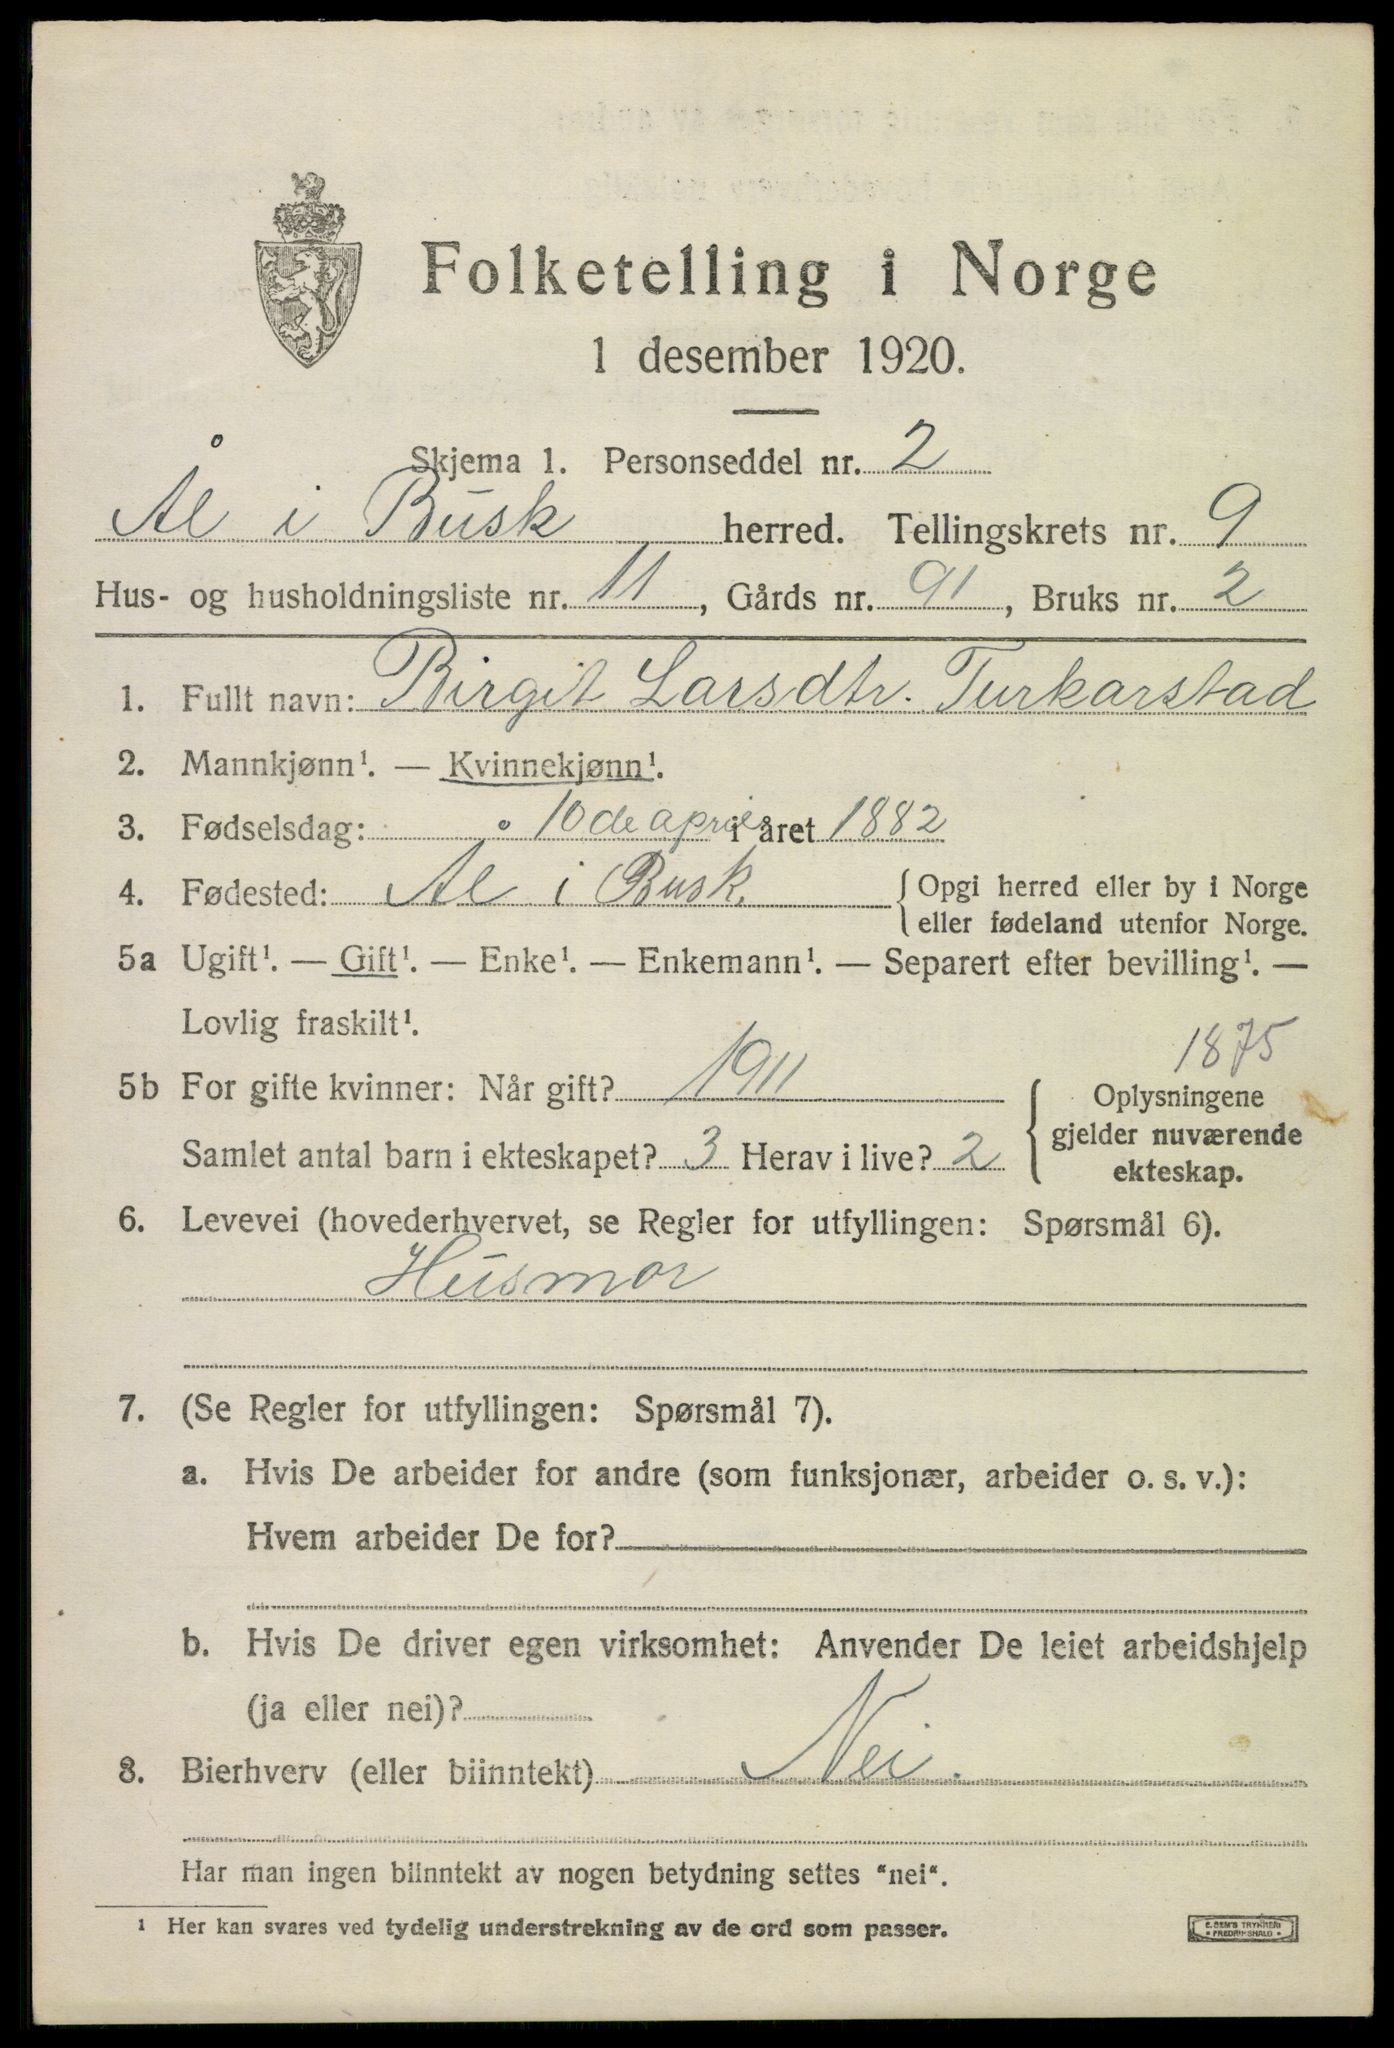 Folketelling i Norge
1 desember 1920.
Skjema 1. Personseddel nr. 2
Ål i Busk herred. Tellingskrets nr. 9
Hus- og husholdningsliste nr. 11, Gårds nr. 91, Bruks nr. 2
1. Fullt navn: Birgit Larsdtr. Turkarstad
2. Mannkjønn¹. — Kvinnekjønn¹.
3. Fødselsdag: 10 de april i året 1882
4. Fødested: Ål i Busk. { Opgi herred eller by i Norge
eller fødeland utenfor Norge.
5a Ugift¹. — Gift¹. — Enke¹. — Enkemann¹. — Separert efter bevilling¹. —
Lovlig fraskilt¹.
1875
5b For gifte kvinner: Når gift? 1911 { Oplysningene
gjelder nuværende
Samlet antal barn i ekteskapet? 3 Herav i live? 2
ekteskap.
6. Levevei (hovederhvervet, se Regler for utfyllingen: Spørsmål 6).
Husmor
7. (Se Regler for utfyllingen: Spørsmål 7).
a. Hvis De arbeider for andre (som funksjonær, arbeider o. s. v.):
Hvem arbeider De for?
b. Hvis De driver egen virksomhet: Anvender De leiet arbeidshjelp
(ja eller nei)?
8. Bierhverv (eller biinntekt) Nei.
Har man ingen biinntekt av nogen betydning settes "nei".
¹ Her kan svares ved tydelig understrekning av de ord som passer.
E. SEM'S TRYKKERI
• FREDRIKSHALD •